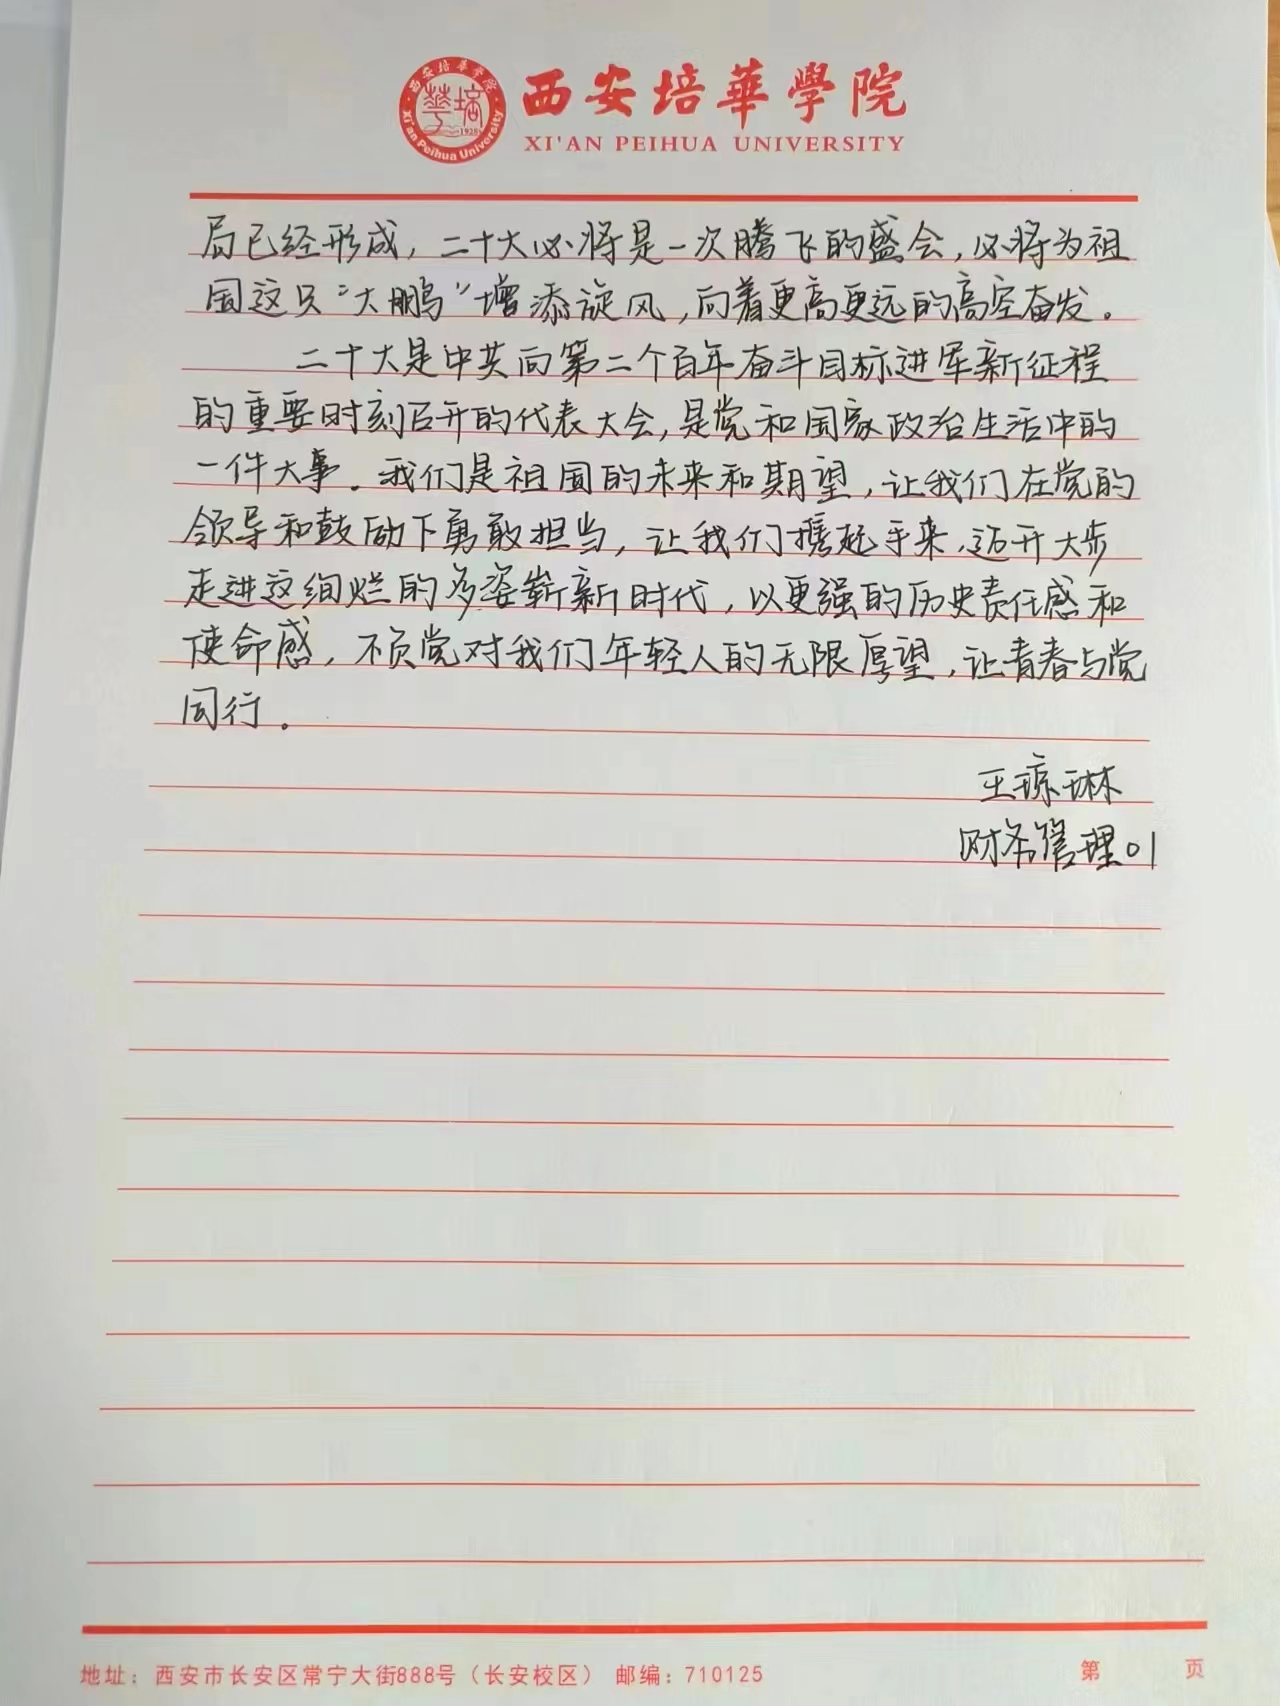 西安培華學院
XI'AN PEIHUA UNIVERSITY
西安培华学院
華培
1928
Xi'an Peihua University
局已经形成，二十大必将是一次腾飞的盛会，必将为祖
国这只“大鹏”增添旋风，向着更高更远的高空奋发。
二十大是中共向第二个百年奋斗目标进军新征程
的重要时刻召开的代表大会，是党和国家政治生活中的
一件大事。我们是祖国的未来和期望，让我们在党的
领导和鼓励下勇敢担当，让我们携起手来，迈开大步
走进这绚烂的多姿崭新新时代，以更强的历史责任感和
使命感，不负党对我们年轻人的无限厚望，让青春与党
同行。
王琼琳
财务管理01
地址：西安市长安区常宁大街888号（长安校区） 邮编：710125
第 页